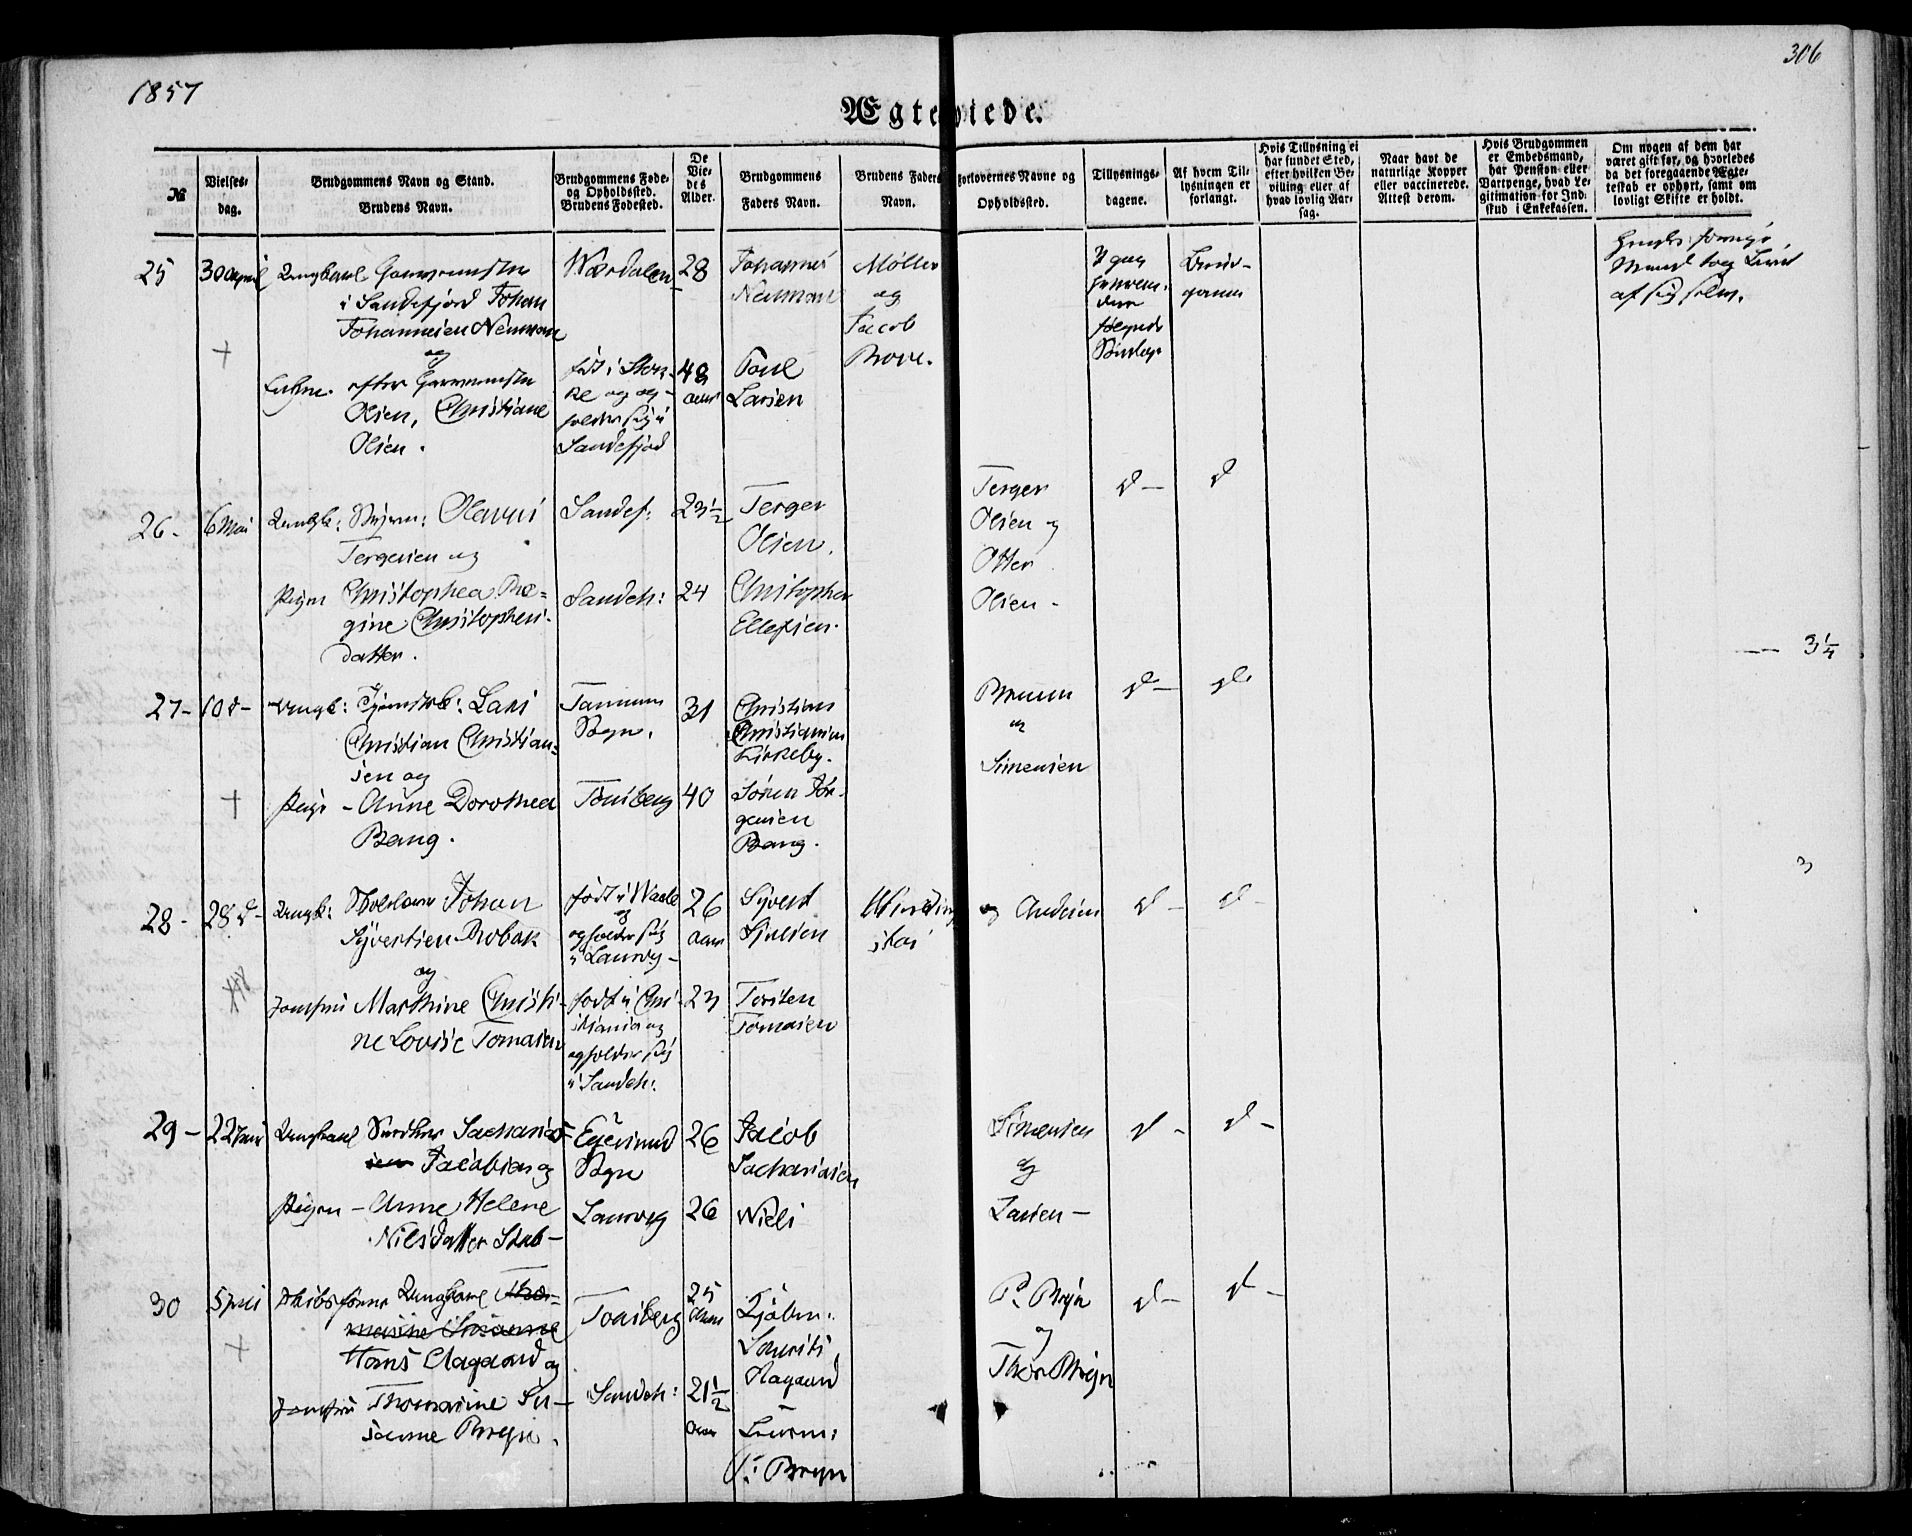 1857
306
Ægteviede.
№
Vielses-
dag.
Brudgommens Navn og Stand.
Brudens Navn.
Brudgommens Føde-
og Opholdssted.
Brudens Fødested.
De
Vie-
des
Alder.
Brudgommens
Faders Navn.
Brudens Faders
Navn.
Forlovernes Navne og
Opholdssted.
Tillysnings-
dagene.
Af hvem Til-
lysningen er
forlangt.
Hvis Tillysning ei
har fundet Sted,
efter hvilken Be-
villing eller af
hvad lovlig Aar-
sag.
Naar havt de
naturlige Kopper
eller vaccinerede.
Attest derom.
Hvis Brudgommen
er Embedsmand,
har Pension eller
Vartpenge, hvad Le-
gitimation for Ind-
skud i Enkekassen.
Om nogen af dem har
været gift før, og hvorledes
da det foregaaende Ægte-
teskab er ophørt, samt om
lovligt Skifte er holdt.
25 30 April Ungkarl
i Sandefjord Johan
Johannesen Neuman
og
Enken efter
Olsen, Christiane
Olsen.
Værdalen 28
født i Stok-
ke og op-
holder sig i
Sandefjord
48
Aar
Johannes
Neuman
Poul
Larsen
Møller
og
Jacob
Bove.
3 gng
følgende
Brud-
gommen
Mand tog Livet
af sig selv.
26- 6 Mai Ungk:
Tergesen og
Pigen Christophea Re-
gine Christophers-
datter.
Sandef: 23½
Sandeh: 24
Terger
Olsen.
Christopher
Ellefsen.
Terger
Olsen og
Otter
Olsen-
d- d
-- 3¼
27- 10 d- Ungk: Lars
Christian Christian-
sen og
Pige - Anne Dorothea
Bang.
Tanum
Sogn. 31
Tønsberg 40
Christian
Christiansen
Kirkeby.
Søren Jør-
gensen
Bang.
Bruun
og
Simensen
d- d-
3
28- 28 d- Ungk: Johan
Syvertsen Robak
og
Jomfru Marthine Christi-
ne Lovise Tomasen
født i
og
opholder sig
i Laurvig-
26
Aar
født i Chri-
stiania og
opholder sig
i Sandeh:
23
Syvert
Sjulsen
Torsten
Tomasen
og Andersen
d- d-
29- 22 Juni Ungkarl Snedker Sacharias
Jacobsen og
Pigen - Anne Helene
Nilsdatter Stub-
Egersund
Sogn 26
Laurvig 26
Jacob
Sachariasen
Niels
Simensen
og
Larsen-
d- d-
30 5 Juli Skibsfører Ungkarl
Hans Aagaard og
Jomfru Thomasine Su-
sanne Bryn.
Tønsberg 25
Aar
Sandeh: 21½
Aar
Kjøbm:
Lauritz
Aagaard
P: Bryn
P. Bryn
og
Thor Bryn
d- d-